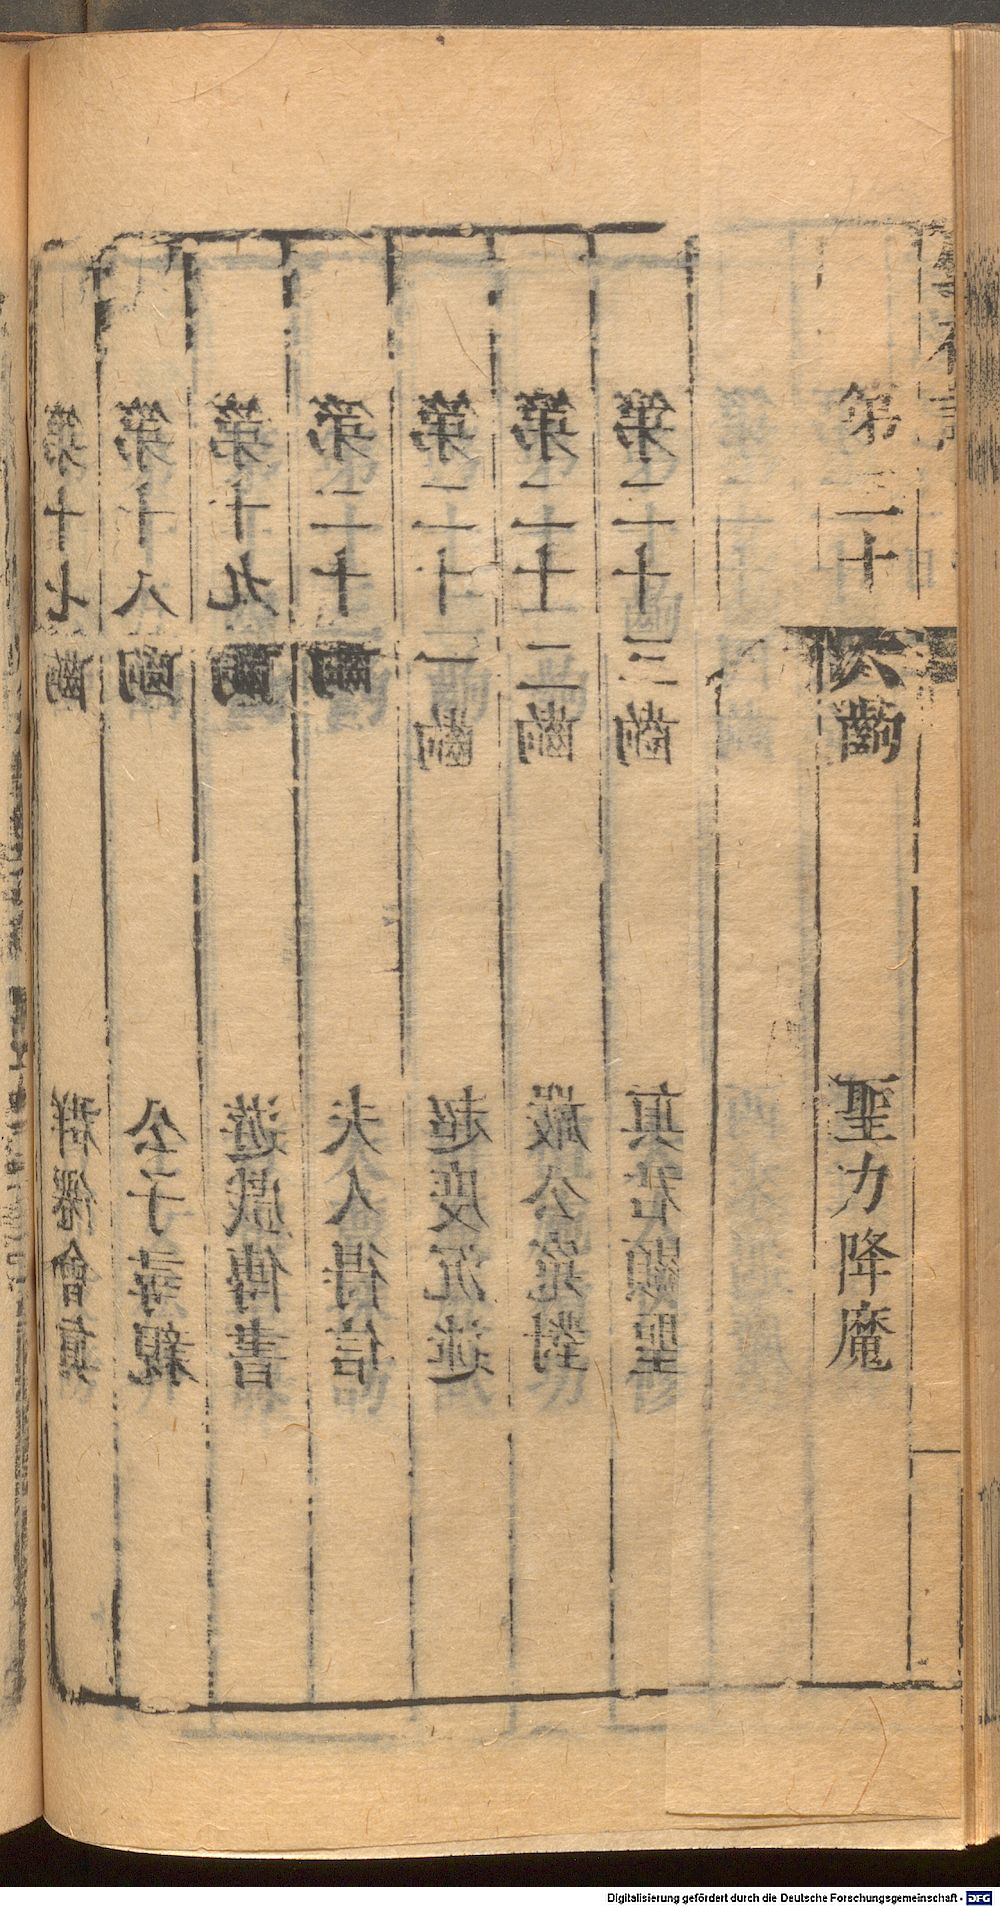 第二十六齣 聖力降魔
第二十三齣 真君顯聖
第二十二齣 嚴公冤對
第二十一齣 超度沉迷
第二十齣 夫人得信
第十九齣 遊戲傳書
第十八齣 公子尋親
第十七齣 群僊會真
Digitalisierung gefördert durch die Deutsche Forschungsgemeinschaft - DFG